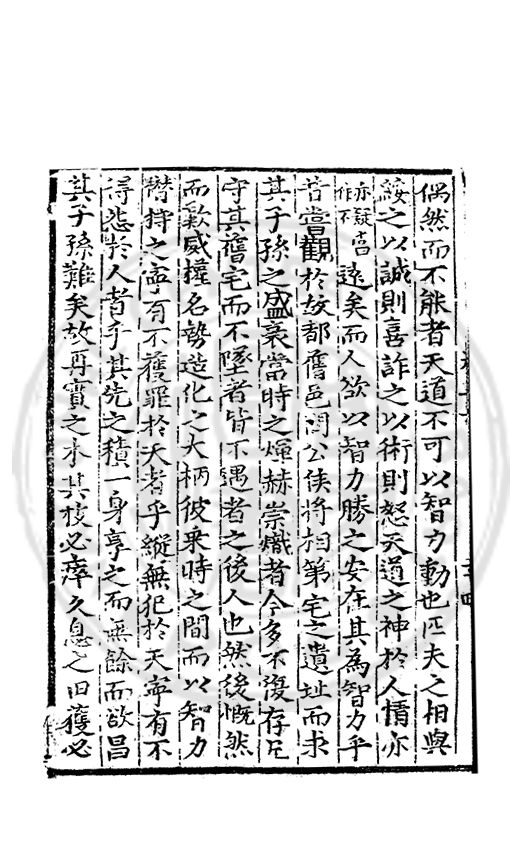 偶然而不能者天道不可以智力動也匹夫之相與
綏之以誠則喜詐之以術則怒天道之神於人情亦
亦疑當作不遠矣而人欲以智力勝之安在其為智力乎
昔嘗觀於故都舊邑問公侯將相第宅之遺址而求
其子孫之盛衰當時之煇赫崇熾者今多不復存
守其舊宅而不墜者皆不遇者之後人也然後慨然
而歎威權名勢造化之大柄彼乘時之間而以智力
持之寧有不獲罪於天者乎縱無犯於天寧有不
得怨於人者乎其先之積一身享之而無餘而欲昌
其子孫難矣故再實之木其根必瘁久息之田獲必